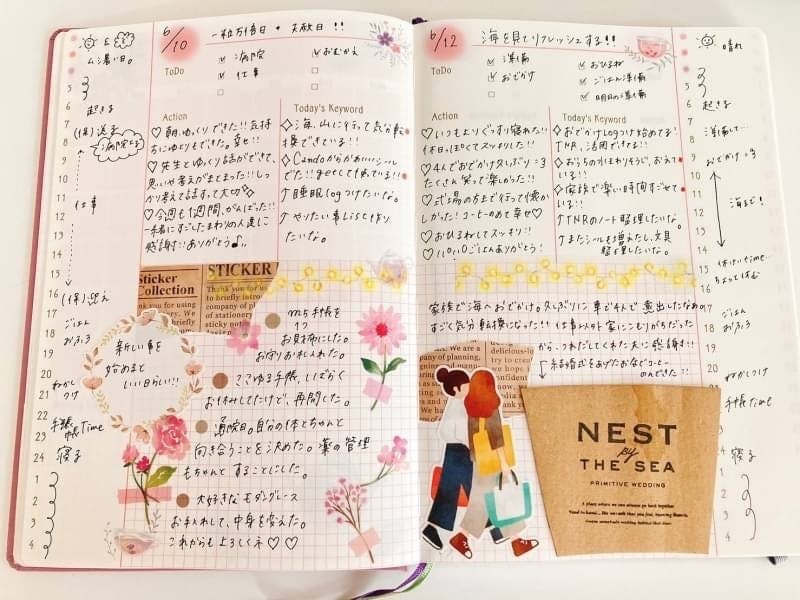 6/10 一粒万倍日 + 天赦日!!
ムシ暑い日。
ToDo
病院
おむかえ
仕事
Action
Today's Keyword
♡朝、ゆっくりできた!!気持
ちにゆとりもできた。幸せ!!
♡先生とゆっくり話ができて、
思いや考えがまとまった!!しっ
かり考えて話すって大切
♡今週も1週間、がんばった!!
一緒にすごしたまわりの人達に
感謝!!ありがとう♪。
◇海、山に行って気分転
換できている!!
◇Candoからかわいいシール
でた!!getして使っている!!
↑睡眠logつけたいな。
↑やりたい事Listもやり
たいな。
5
6
7
8
9
10
11
12
13
14
15
16
17
18
19
20
21
22
23
24
1
2
3
4
起きる
(保)送る
病院
仕事
(保)迎え
ごはん
おふろ
ねかし
つけ
手帳
Time
寝る
Sticker
Collection
STICKER
Thank you for us
to briefly introd
company of pl
of stationery
sticky not
新しい事を
始めると
いい日らしい!!!
m5手帳を
お財布にした。
お守りお札入れた。
ココゆる手帳、しばらく
お休みしてたけど、再開した。
通院日。自分の体とちゃんと
向き合うことを決めた。薬の管理
もちゃんとすることにした。
大好きなモダングレース
お手入れして、中身を変えた。
これからも上ろしくネ♡♡
6/12 海を見てリフレッシュする!!
ToDo
準備
おひるね
おでかけ
ごはん準備
明日の準備
Action
Today's Keyword
♡いつもよりぐっすり寝れた!!
休日っぽくてスッキリした!!
♡4人でおでかけ久しぶり:3
たくさん笑って楽しかった!!
♡式場の方まで行って懐か
しかった!コーヒーのめて幸せ♡
♡おひるねしてスッキリ!!
♡パパごはんありがとう!
◇おでかけLogつけ始めてる!
TNR、活用できてる!!
◇おうちの水まわりそうじ、おえて
いる!!
◇家族で楽しい時間すごせて
いる!!
↑TNRのノート整理したいな。
↑またシールも増えたし、文具
整理したいな。
晴れ
5
6
7
8
9
10
11
12
13
14
15
16
17
18
19
20
21
22
23
24
1
2
3
4
起きる
準備して…
おでかけ:3
海まで!
ちょっと休む
ごはん
おふろ
ねかしつけ
手帳Time
寝る
家族で海へおでかけ。久しぶりに車で4人で遠出したなぁ
すごく気分転換になった!!仕事以外家にこもりがちだった
から、つれだしてくれた夫に感謝!!
↓結婚式をあげたお店でコーヒー
のんできた!!
NEST
by
THE SEA
PRIMITIVE WEDDING
A place where we can always go back together